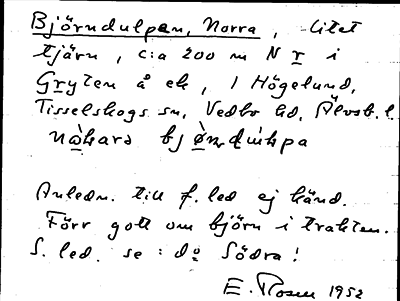 Björndulpen, Norra, litet
tjärn, c:a 200 m N r i
Gryten å ek, 1 Högelund,
Tisselskogs sn, Vedbo hd, Älvsb. l.
Anledn. till f. led ej känd.
Förr gott om björn i trakten.
S. led. se: do Södra!
E. Rosen 1952